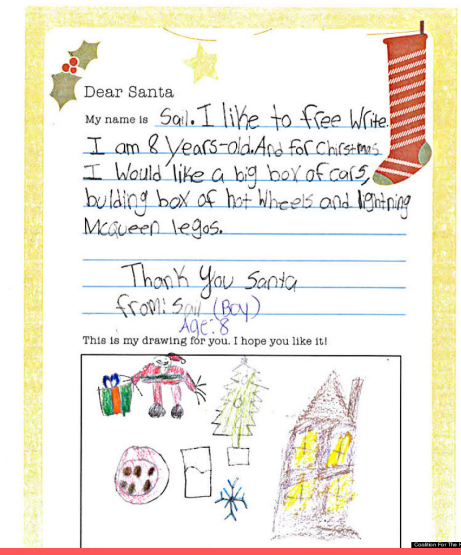 Dear Santa
My name is Sail. I like to free Write.
I am 8 years-old. And for Chirstmas
I Would like a big box of cars,
bulding box of hot Wheels and lightning
Mcqueen legos.
Thank You Santa
from: Sail (Boy)
Age: 8
This is my drawing for you. I hope you like it!